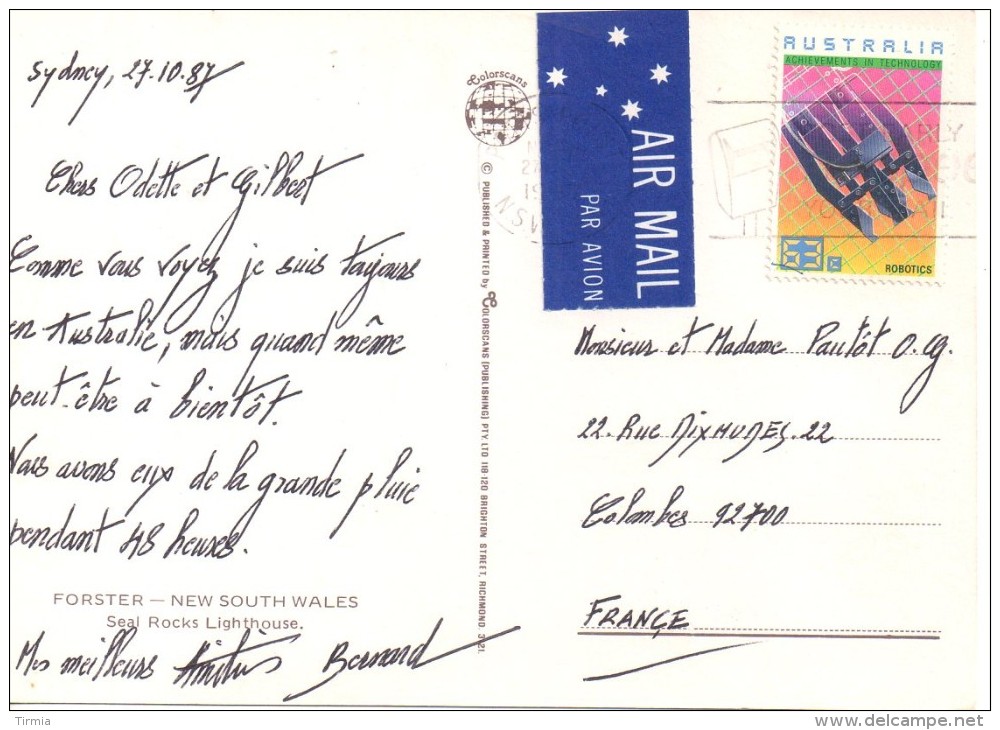 Sydney, 27.10.87
Chers Odette et Gilbert
Comme vous voyez je suis toujours
en Australie, mais quand même
peut-être à bientôt.
Nous avons eus de la grande pluie
pendant 48 heures.
FORSTER — NEW SOUTH WALES
Seal Rocks Lighthouse.
Mes meilleurs Amitiés Bernard
Colorscans
© PUBLISHED & PRINTED by COLORSCANS (PUBLISHING) PTY. LTD 118-120 BRIGHTON STREET, RICHMOND. 3121.
AIR MAIL
PAR AVION
NSW
AUSTRALIA
ACHIEVEMENTS IN TECHNOLOGY
ROBOTICS
Monsieur et Madame Pautôt O.G.
22. Rue DIXMUDES. 22
Colombes 92700
FRANÇE
Tirmia
delcampe.net